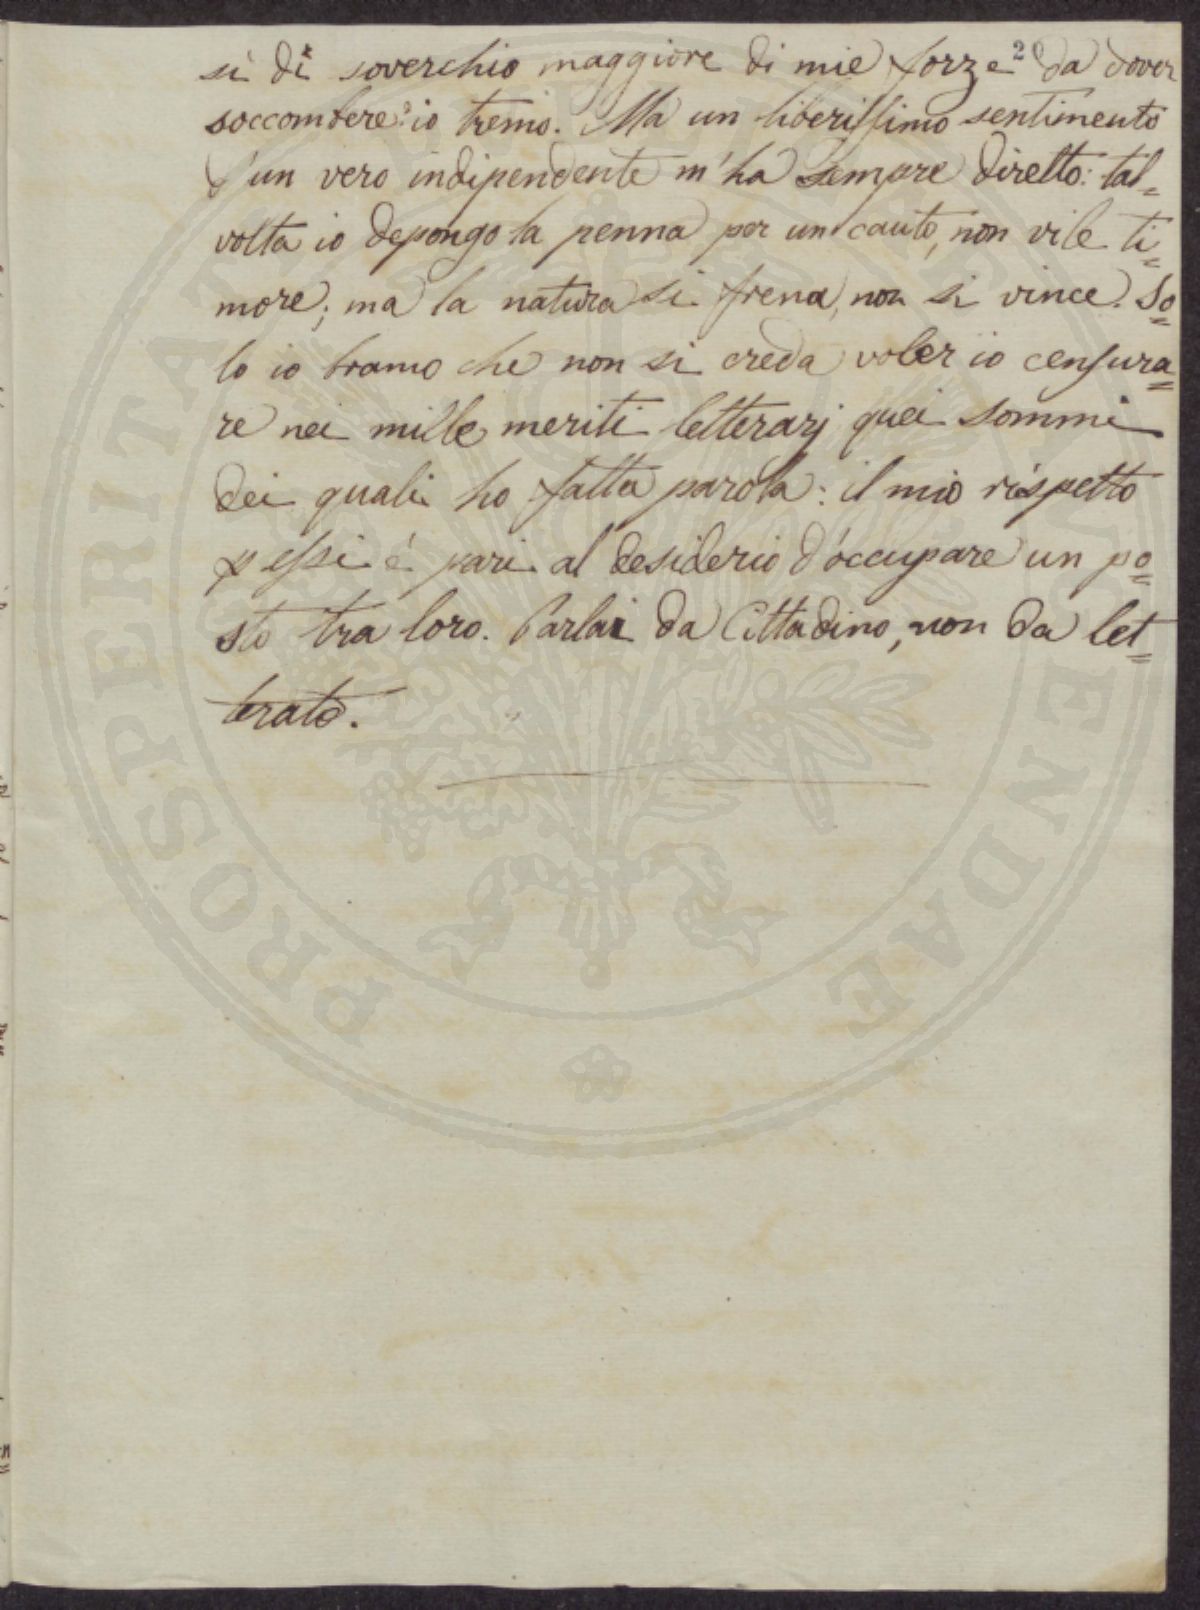 sì di soverchio maggiore di mie forze 2 da dover
soccombere? io tremo. Ma un liberissimo sentimento
d'un vero indipendente m'ha sempre diretto: tal=
volta io depongo la penna per un cauto, non vile ti=
more; ma la natura si frena, non si vince. So=
lo io bramo che non si creda voler io censura=
re nei mille meriti letterarj quei sommi
dei quali ho fatta parola: il mio rispetto
p essi è pari al desiderio d'occupare un po=
sto tra loro. Parlai da Cittadino, non da let=
terato.
PROSPERITATI PUBLICAE AUGENDAE